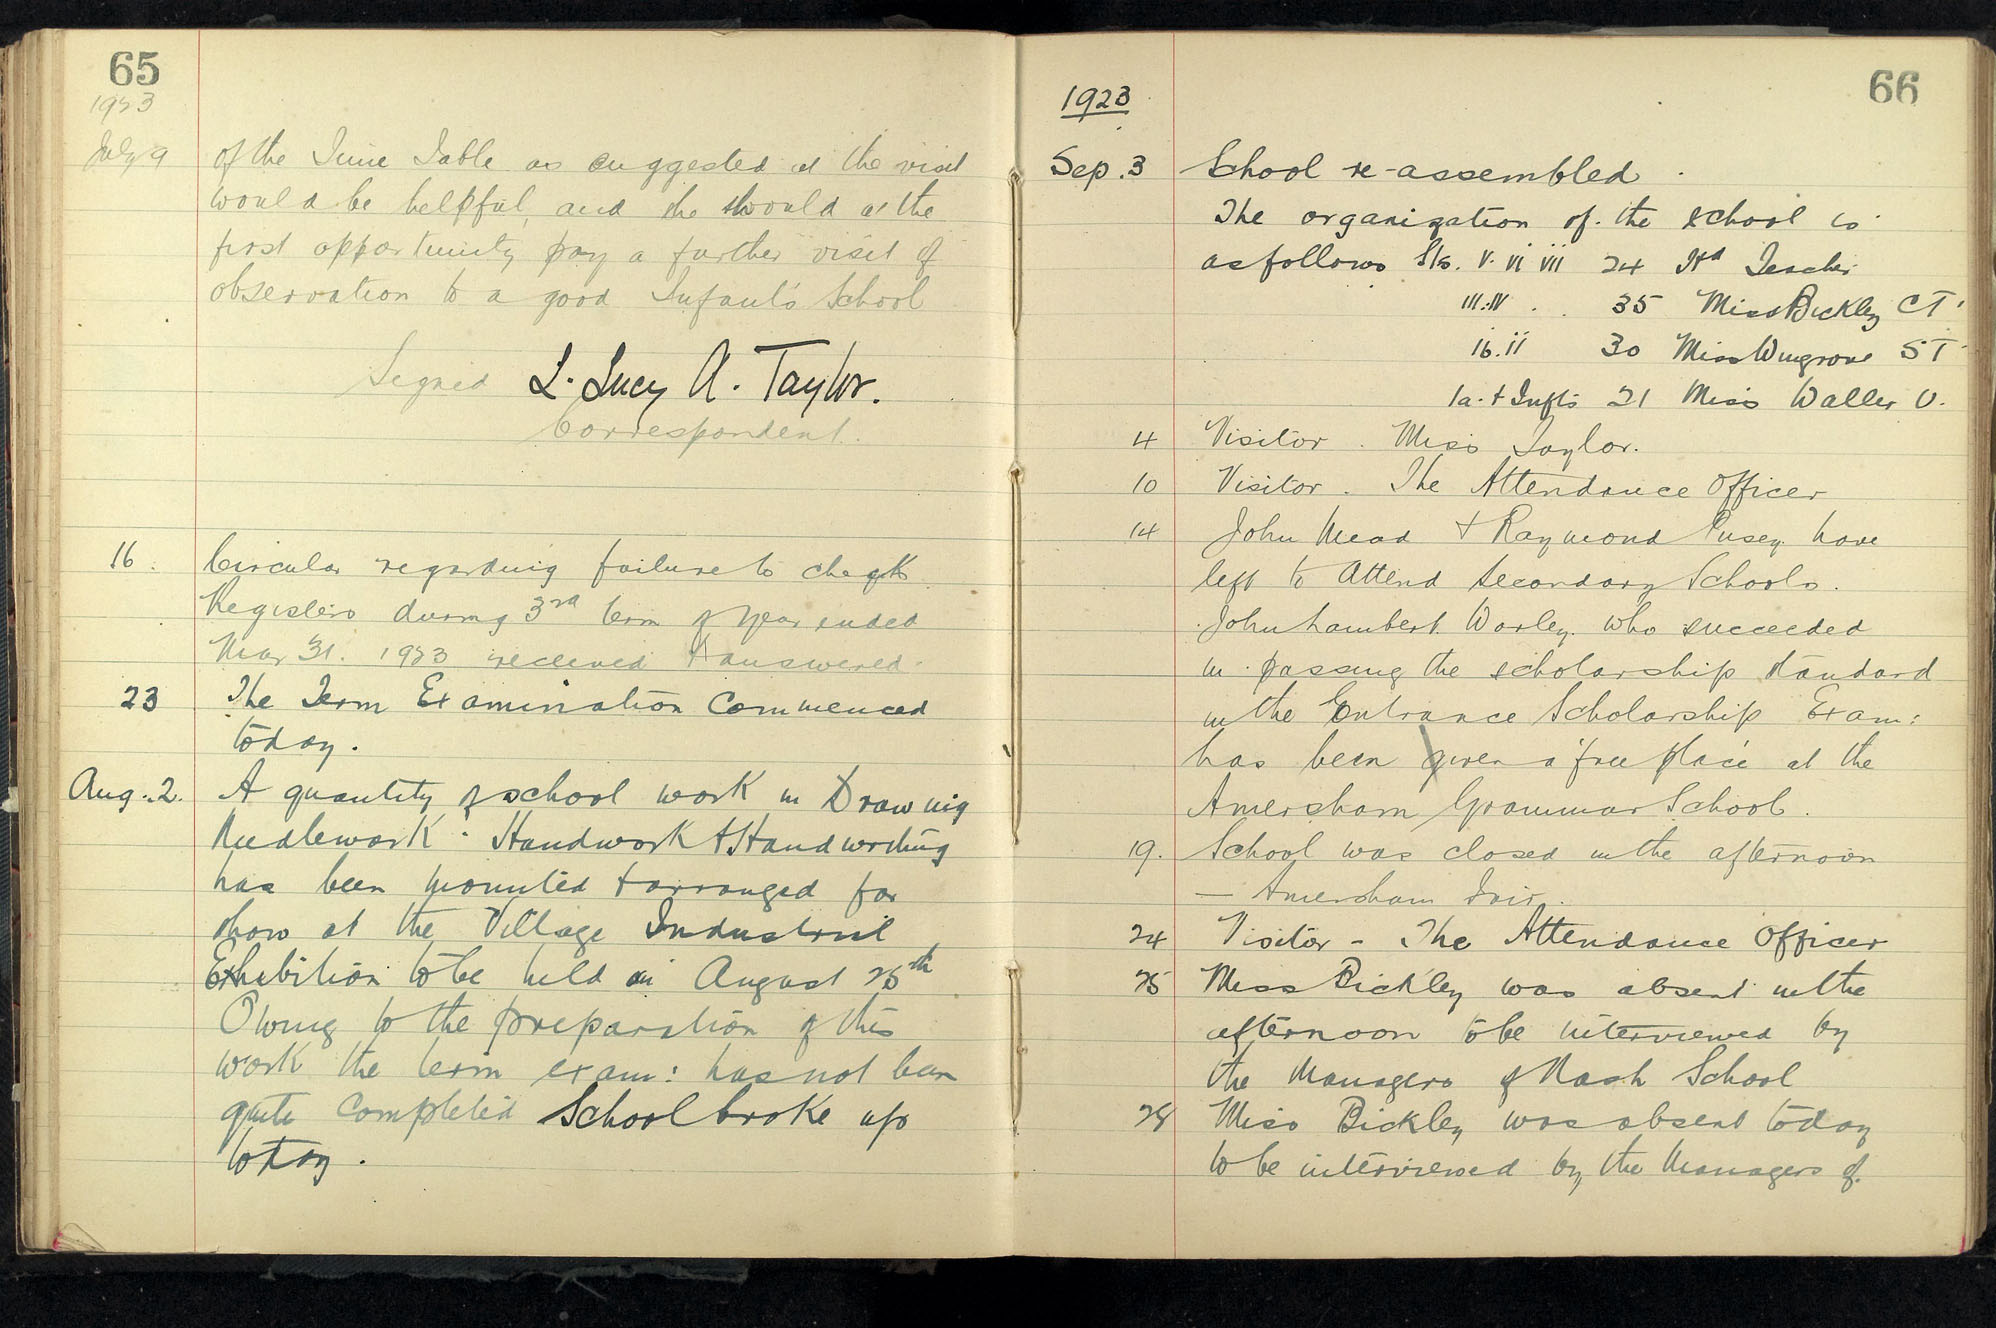 65
1923
July 9 of the Time Table as suggested at the visit
would be helpful, and she should at the
first opportunity pay a further visit of
observation to a good Infants School
Signed L. Lucy A. Taylor.
Correspondent.
16. Circular regarding failure to check
Registers during 3rd term of year ended
Mar 31. 1923 received & answered.
23 The Term Examination Commenced
today.
Aug. 2. A quantity of school work in Drawing
Needlework . Handwork & Handwriting
has been mounted & arranged for
show at the Village Industrial
Exhibition to be held on August 25th
Owing to the preparation of this
work the term exam: has not been
quite completed School broke up
today.
66
1923
Sep. 3 School re-assembled.
The organization of the school is
as follows Sts. V. VI VII 24 Hd Teacher
III.IV . . 35 Miss Bickley CT
1b.ii 30 Miss Wingrove ST
1a. + Infts 21 Miss Waller U.
4 Visitor . Miss Taylor.
10 Visitor . The Attendance Officer
14 John Mead & Raymond Pusey have
left to attend Secondary Schools.
John Lambert Worley who succeeded
in passing the scholarship standard
in the Entrance Scholarship Exam:
has been given a 'free place' at the
Amersham Grammar School.
19. School was closed in the afternoon
— Amersham Fair.
24 Visitor - The Attendance Officer
25 Miss Bickley was absent in the
afternoon to be interviewed by
the Managers of Nash School
28 Miss Bickley was absent today
to be interviewed by the Managers of